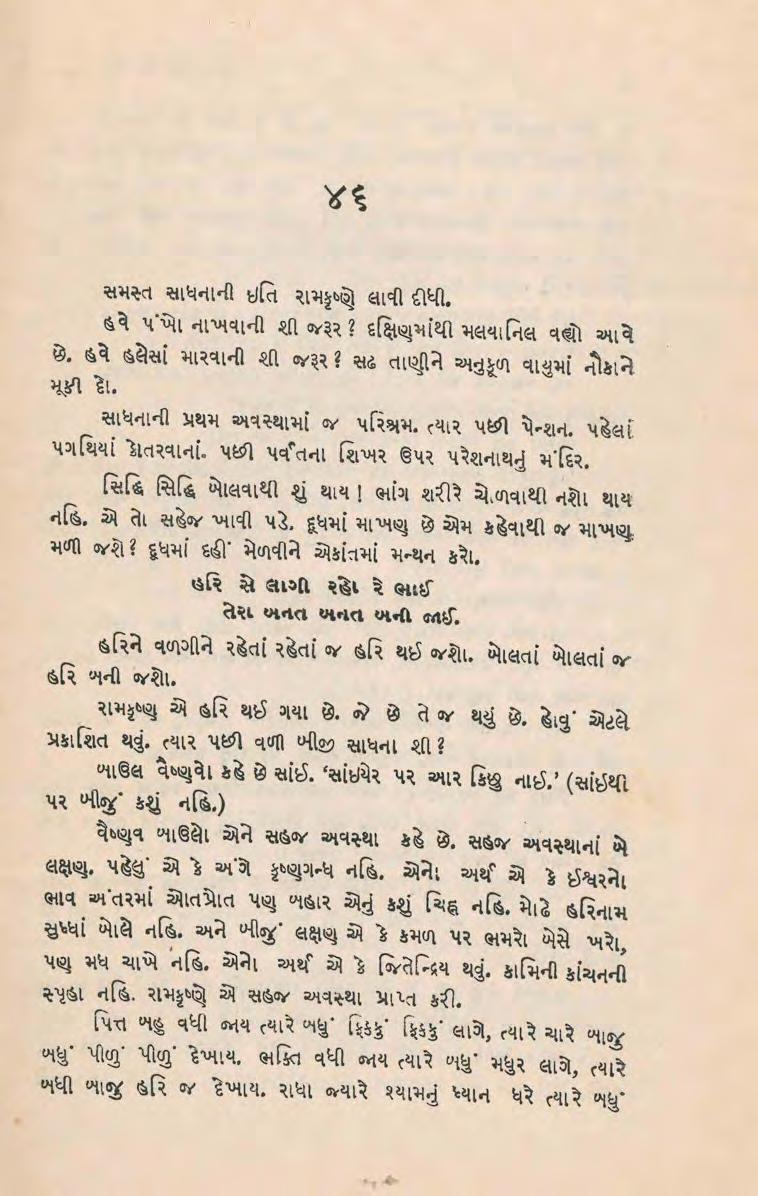 ૪૬
સમસ્ત સાધનાની ઇતિ રામકૃષ્ણે લાવી દીધી.
હવે પંખો નાખવાની શી જરૂર ? દક્ષિણમાંથી મલયાનિલ વહ્યો આવે
છે. હવે હલેસાં મારવાની શી જરૂર ? સઢ તાણીને અનુકૂળ વાયુમાં નૌકાને
મૂકી દો.
સાધનાની પ્રથમ અવસ્થામાં જ પરિશ્રમ. ત્યાર પછી પેન્શન. પહેલાં
પગથિયાં કોતરવાનાં. પછી પર્વતના શિખર ઉપર પરેશનાથનું મંદિર.
સિદ્ધિ સિદ્ધિ બોલવાથી શું થાય ! ભાંગ શરીરે ચોળવાથી નશો થાય
નહિ. એ તો સહેજ ખાવી પડે. દૂધમાં માખણ છે એમ કહેવાથી જ માખણ
મળી જશે ? દૂધમાં દહીં મેળવીને એકાંતમાં મન્થન કરો.
હરિ સે લાગી રહો રે ભાઈ
તેરા બનત બનત બની જાઈ.
હરિને વળગીને રહેતાં રહેતાં જ હરિ થઈ જશો. બોલતાં બોલતાં જ
હરિ બની જશો.
રામકૃષ્ણ એ હરિ થઈ ગયા છે. જે છે તે જ થયું છે. હોવું એટલે
પ્રકાશિત થવું. ત્યાર પછી વળી બીજી સાધના શી ?
બાઉલ વૈષ્ણવો કહે છે સાંઈ. ‘સાંઇયેર પર આર કિછુ નાઈ.’ (સાંઇથી
પર બીજું કશું નહિ.)
વૈષ્ણવ બાઉલો એને સહજ અવસ્થા કહે છે. સહજ અવસ્થાનાં બે
લક્ષણ. પહેલું એ કે અંગે કૃષ્ણગન્ધ નહિ. એનો અર્થ એ કે ઈશ્વરનો
ભાવ અંતરમાં ઓતપ્રોત પણ બહાર એનું કશું ચિહ્ન નહિ. મોઢે હરિનામ
સુધ્ધાં બોલે નહિ. અને બીજું લક્ષણ એ કે કમળ પર ભમરો બેસે ખરો,
પણ મધ ચાખે નહિ. એનો અર્થ એ કે જિતેન્દ્રિય થવું. કામિની કાંચનની
સ્પૃહા નહિ. રામકૃષ્ણે એ સહજ અવસ્થા પ્રાપ્ત કરી.
પિત્ત બહુ વધી જાય ત્યારે બધું ફિક્કું ફિક્કું લાગે, ત્યારે ચારે બાજુ
બધું પીળું પીળું દેખાય. ભક્તિ વધી જાય ત્યારે બધું મધુર લાગે, ત્યારે
બધી બાજુ હરિ જ દેખાય. રાધા જ્યારે શ્યામનું ધ્યાન ધરે ત્યારે બધું